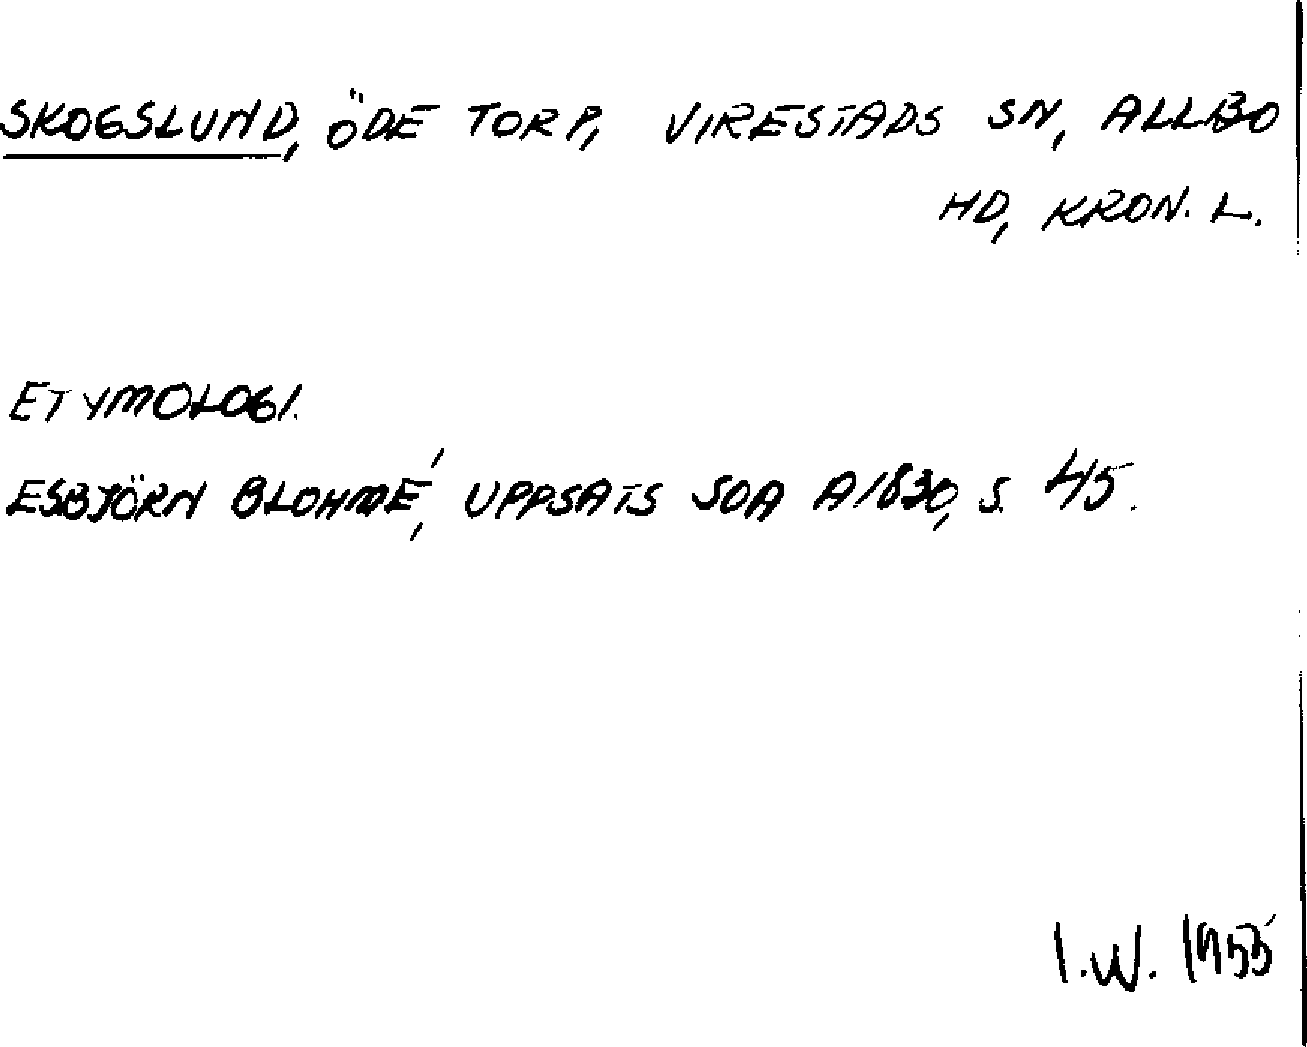 SKOGSLUND, ÖDE TORP, VIRESTADS SN, ALLBO
HD, KRON. L.
ETYMOLOGI.
ESBJÖRN BLOHMÉ, UPPSATS SOA A1830, S. 45.
I.W. 1955